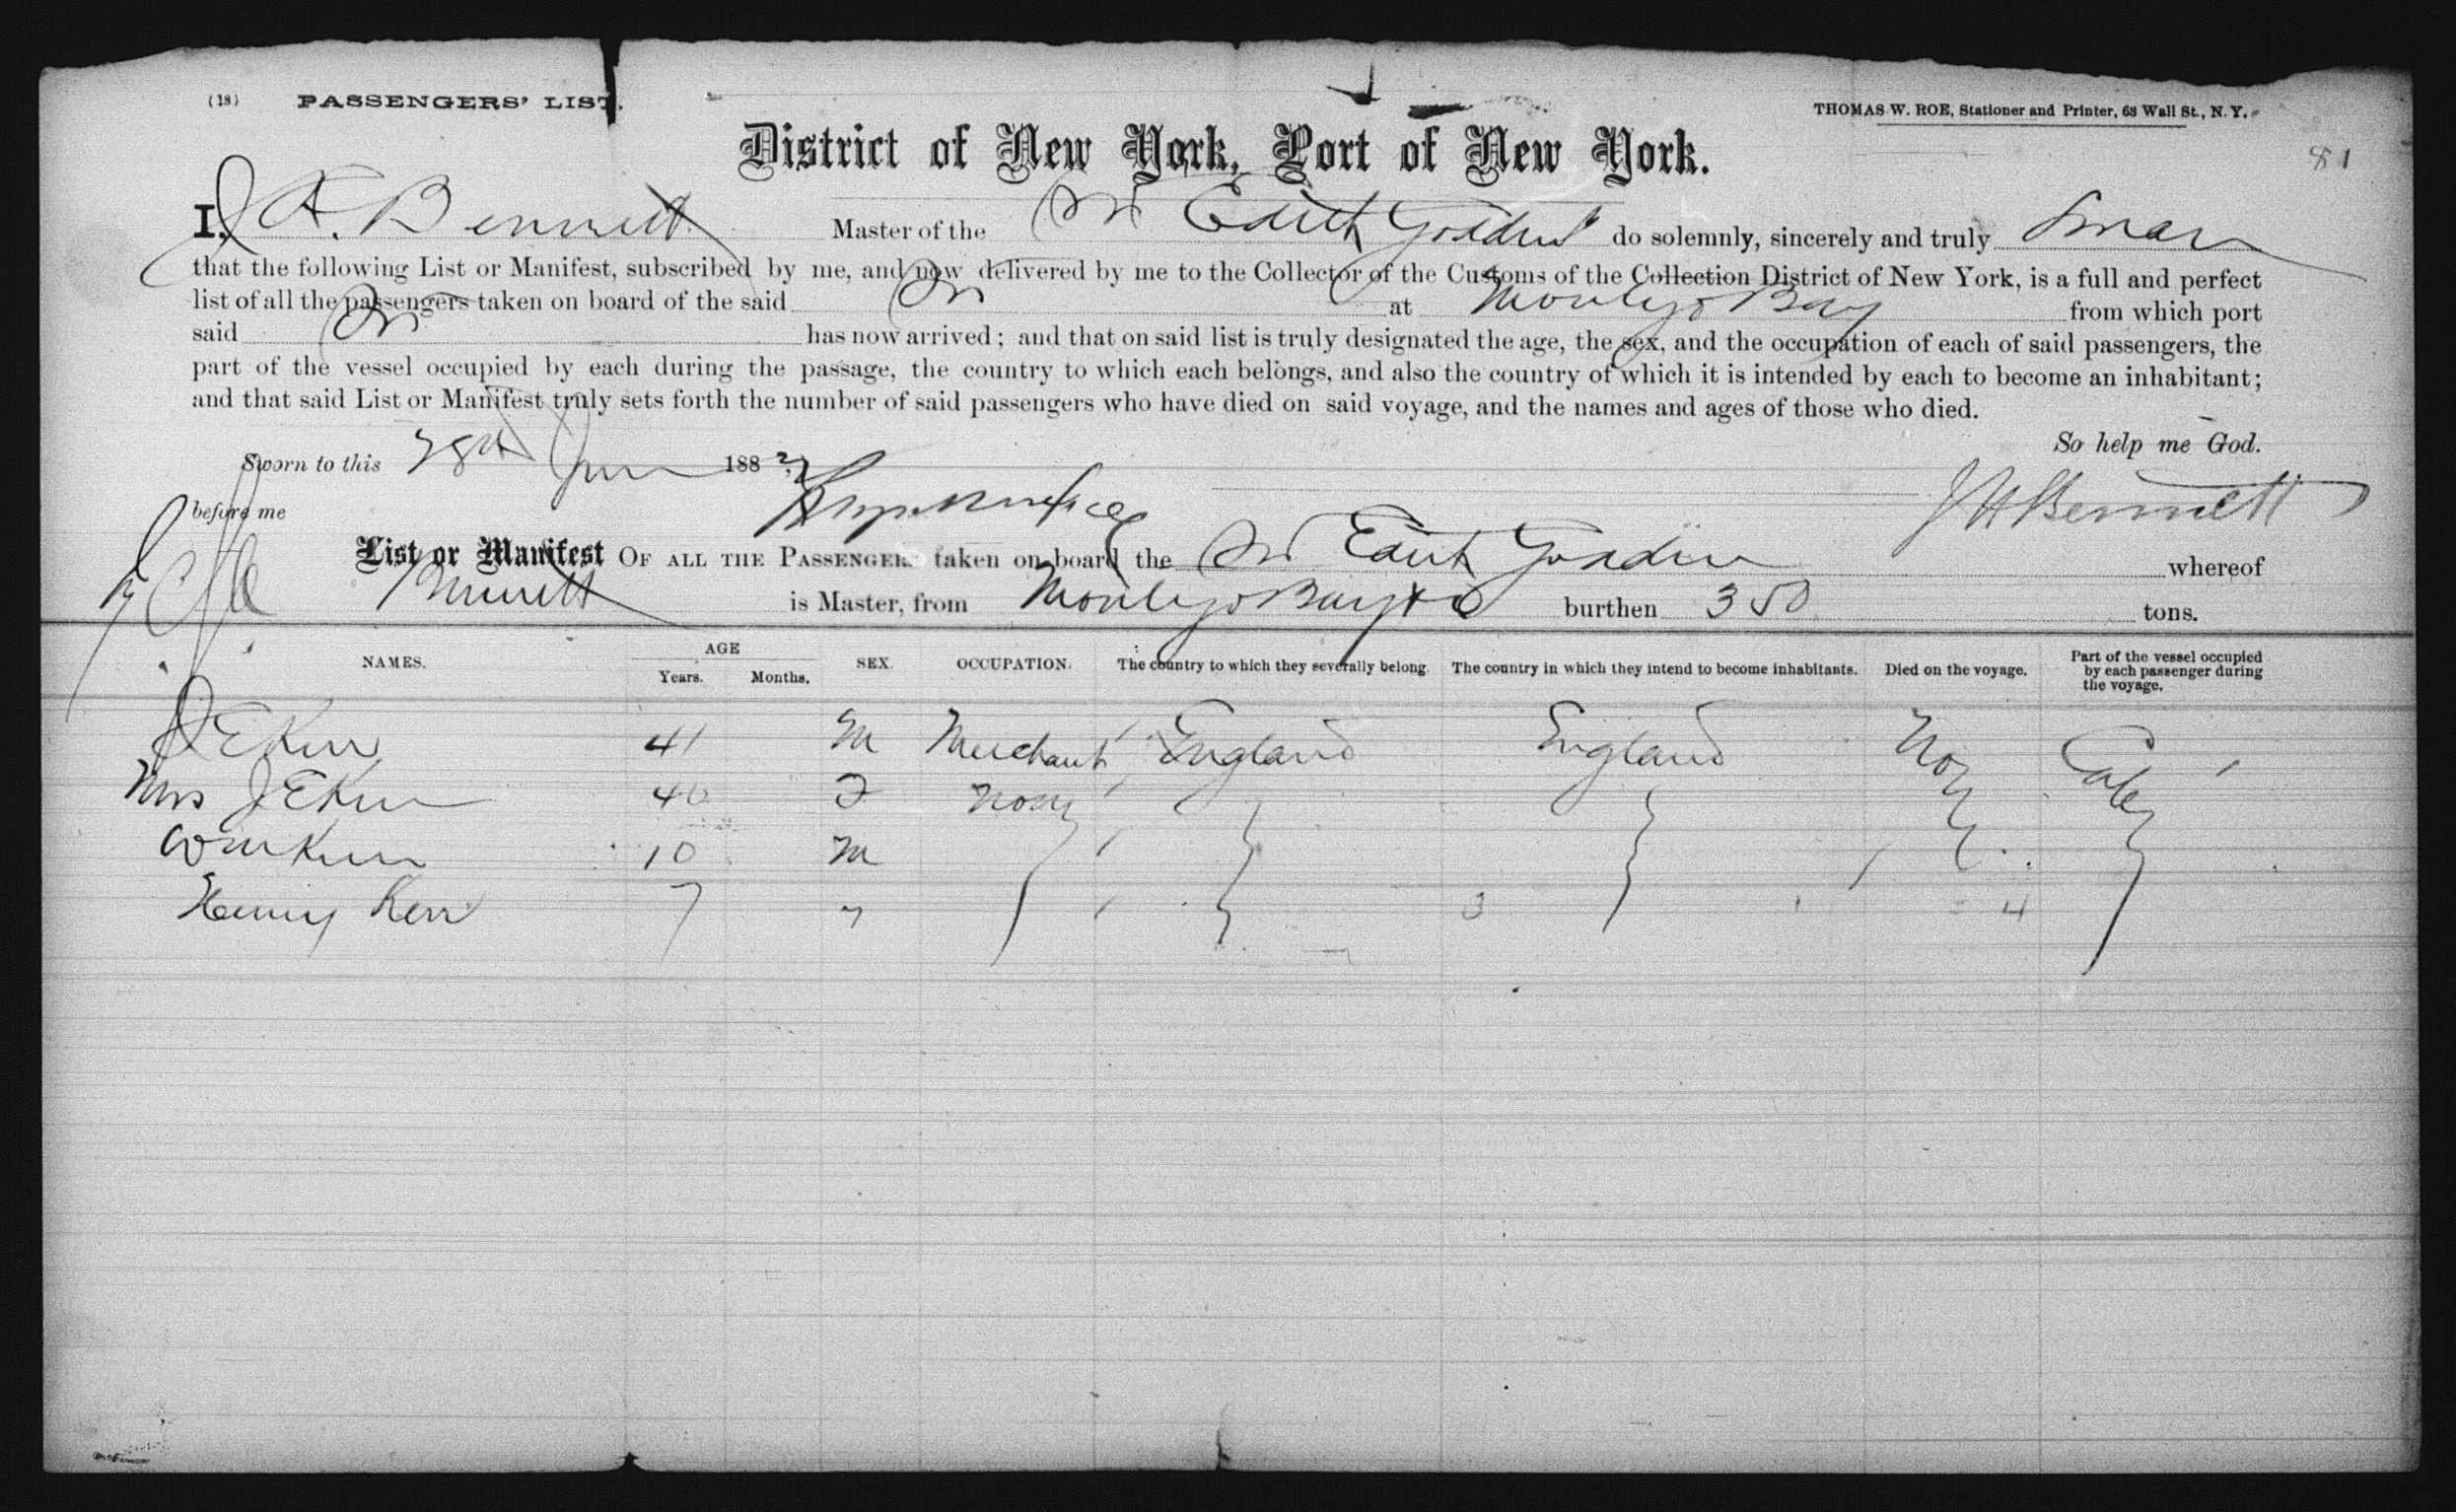 (18) PASSENGERS' LIST. THOMAS W. ROE, Stationer and Printer, 63 Wall St., N. Y.
District of New York, Port of New York. 81
I, J A. Bennett Master of the Edith do solemnly, sincerely and truly Swear
that the following List or Manifest, subscribed by me, and now delivered by me to the Collector of the Customs of the Collection District of New York, is a full and perfect
list of all the passengers taken on board of the said at Montego Bay from which port
said has now arrived; and that on said list is truly designated the age, the sex, and the occupation of each of said passengers, the
part of the vessel occupied by each during the passage, the country to which each belongs, and also the country of which it is intended by each to become an inhabitant;
and that said List or Manifest truly sets forth the number of said passengers who have died on said voyage, and the names and ages of those who died.
So help me God.
Sworn to this 28th June 188
before me J H Bennett
List or Manifest OF ALL THE PASSENGERS taken on board the Edith whereof
Bennett is Master, from Montego Bay burthen 350 tons.
NAMES. AGE Years. Months. SEX. OCCUPATION. The country to which they severally belong. The country in which they intend to become inhabitants. Died on the voyage. Part of the vessel occupied by each passenger during the voyage.
J E Kerr 41 M Merchant England England
Mrs J E Kerr 40 F
Wm Kerr 10 M
Henry Kerr 7 " 3 4